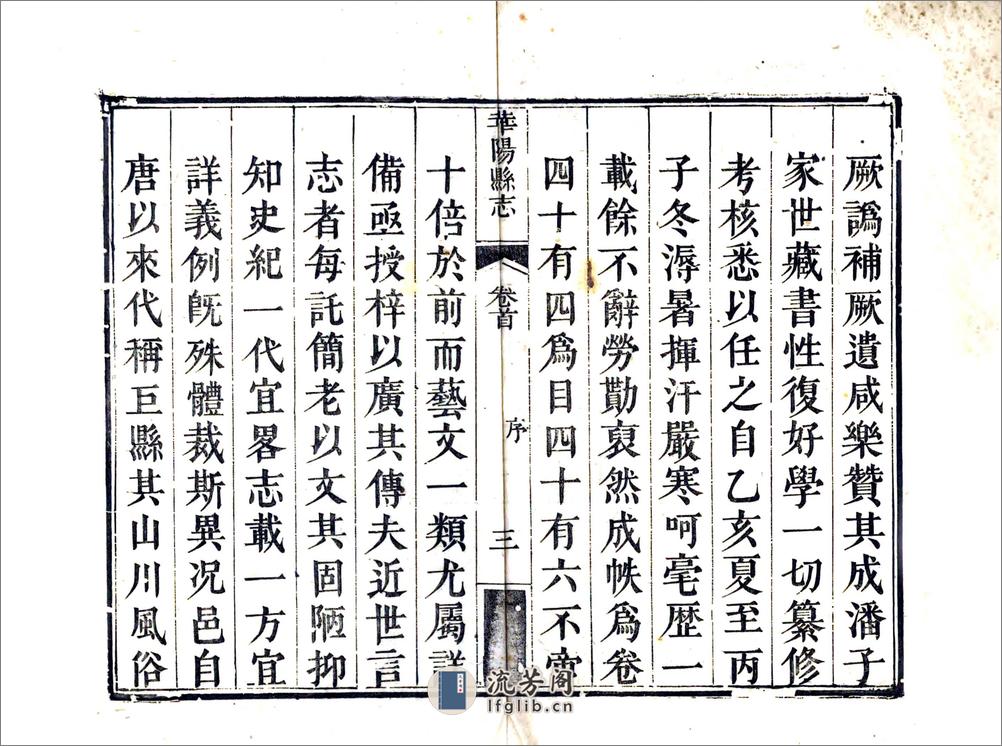 厥譌補厥遺咸樂贊其成潘子
家世藏書性復好學一切纂修
考核悉以任之自乙亥夏至丙
子冬溽暑揮汗嚴寒呵毫歴一
載餘不辭勞勩裒然成帙爲卷
四十有四爲目四十有六不啻
華陽縣志
卷首
序
三
十倍於前而藝文一類尤屬詳
備亟授梓以廣其傳夫近世言
志者每託簡老以文其固陋抑
知史紀一代宜畧志載一方宜
詳義例旣殊體裁斯異况邑自
唐以來代稱巨縣其山川風俗
流芳阁
lfglib.cn